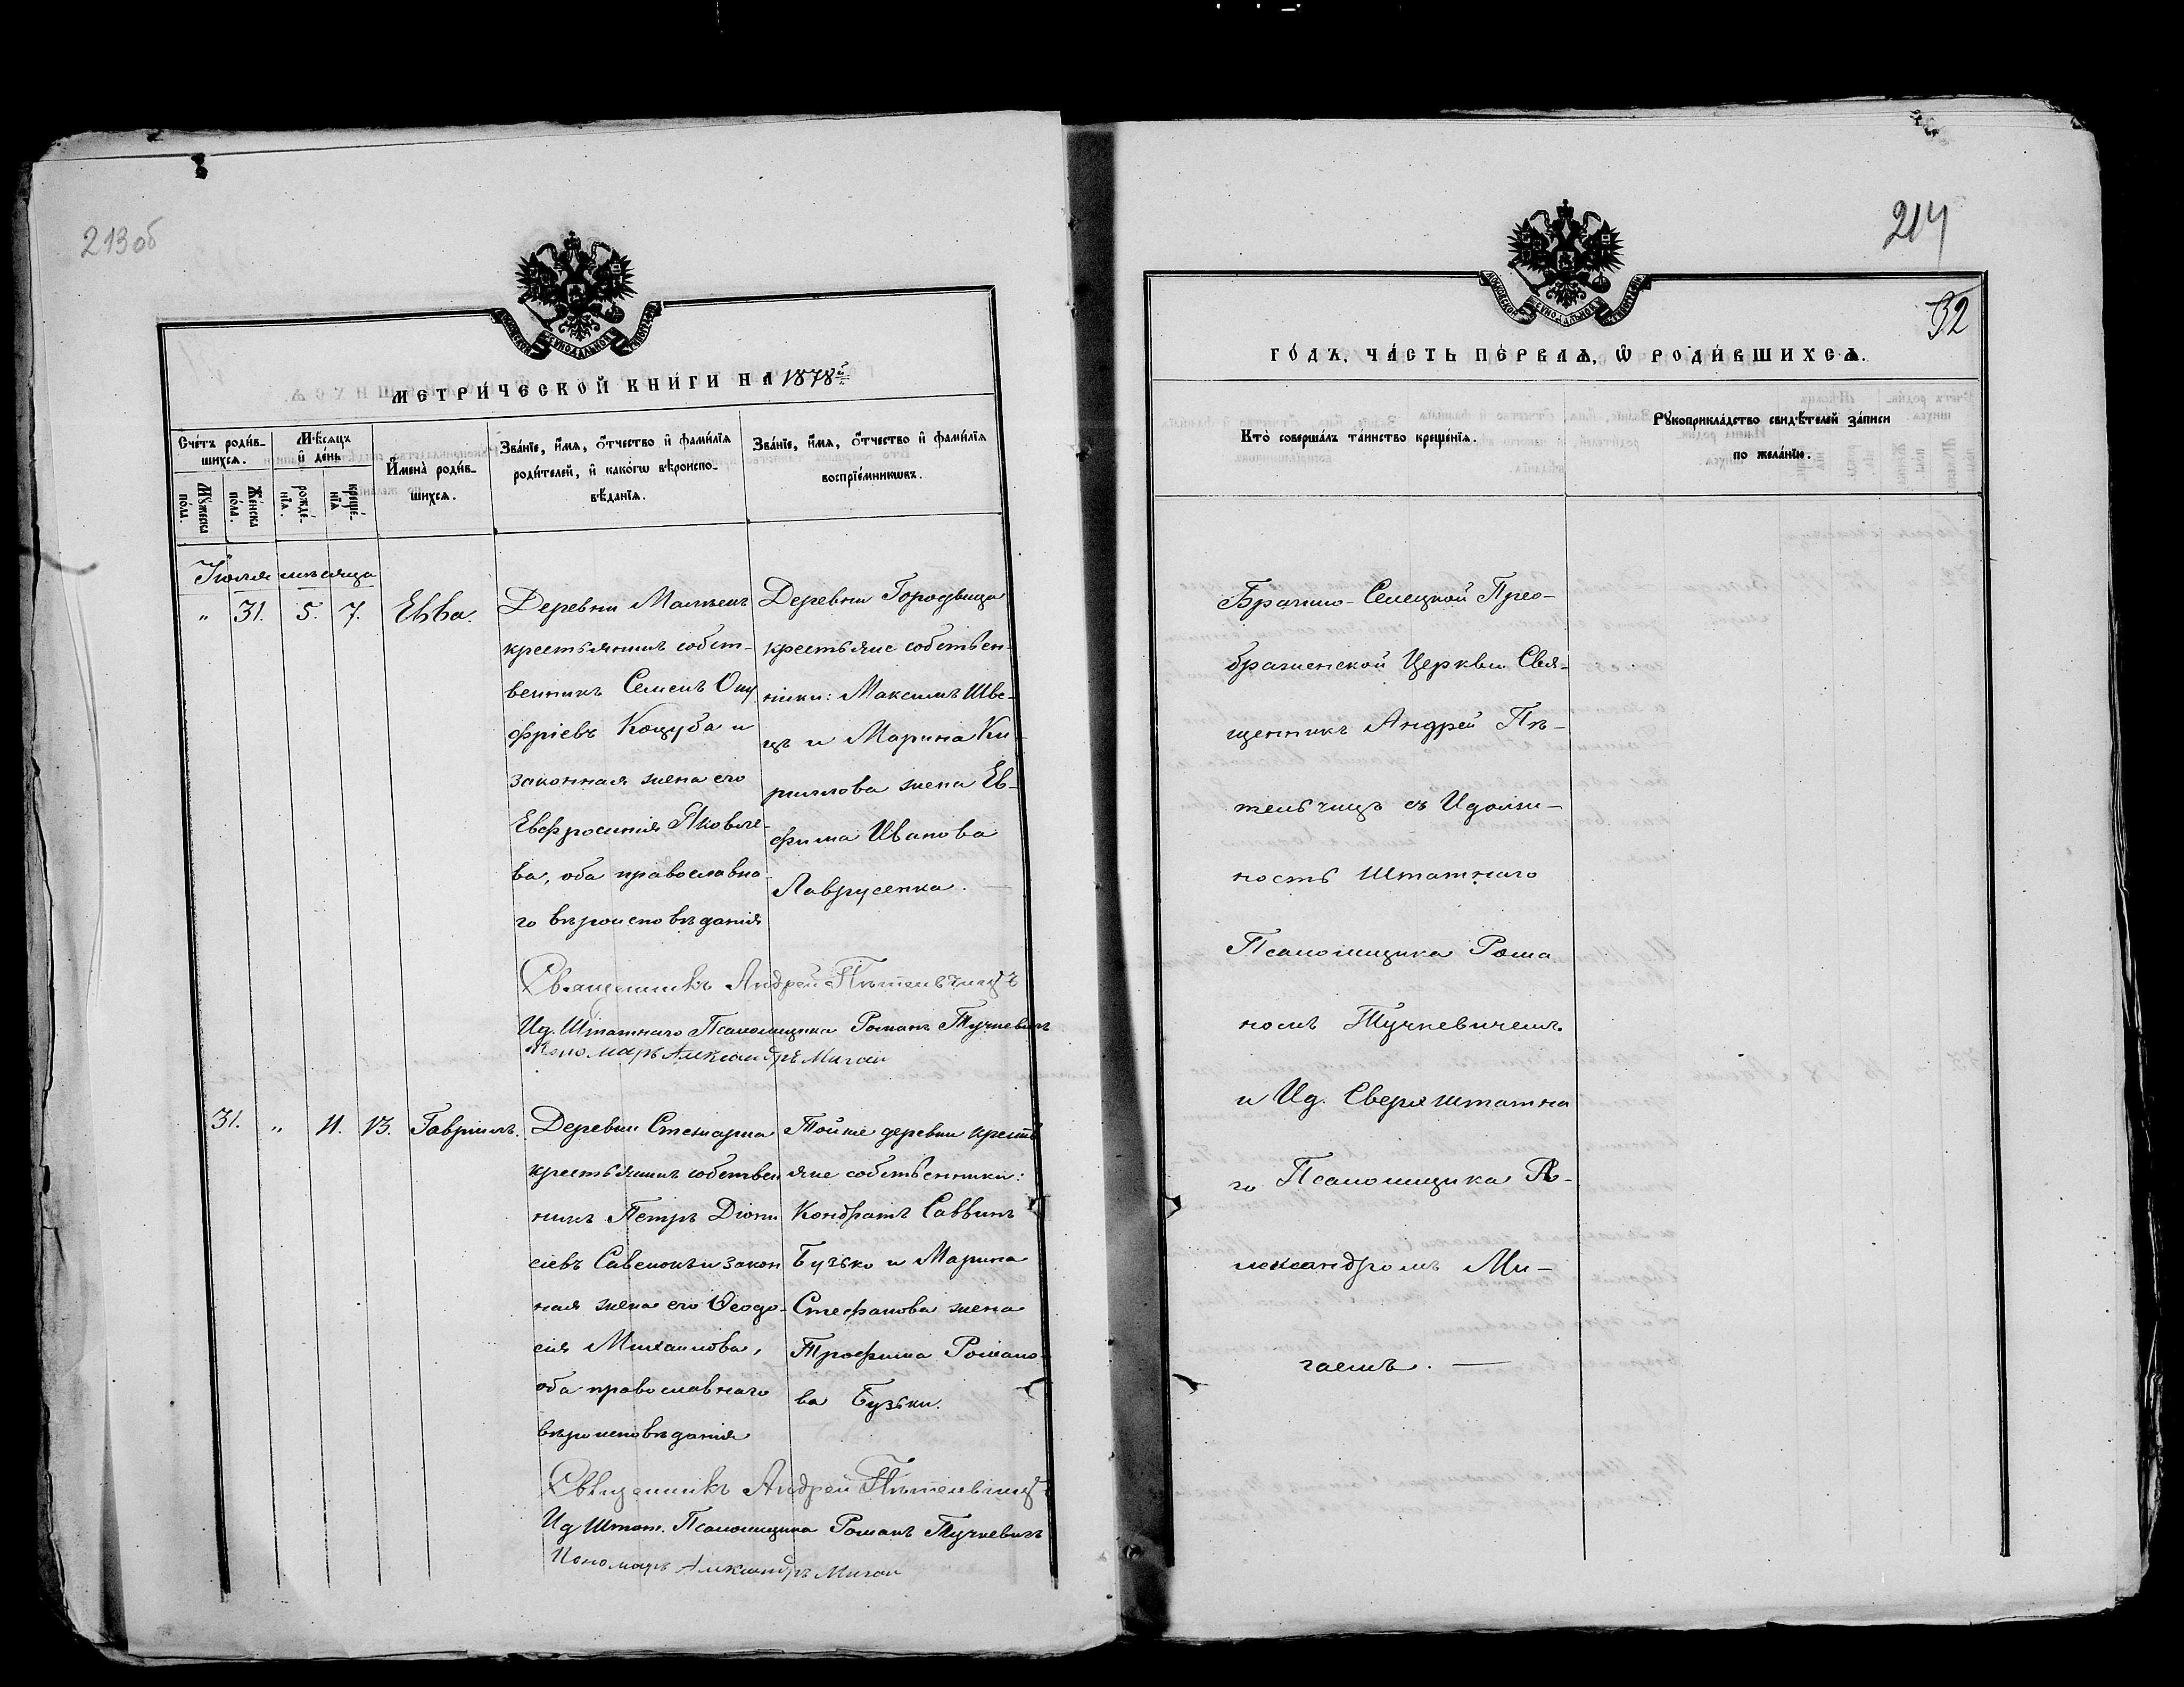 213об
МЕТРИ́ЧЕСКОЙ КНИ́ГИ НА 1878й
Сче́тъ роди́в-
шихся.
Мѣ́сяцъ
и҆ де́нь
И҆мена̀ роди́в-
шихся.
Зва́нїе, и҆́мя, ѻ҆́тчество и҆ фами́лїя
роди́телей, и҆ како́гѡ вѣроиспо-
вѣ́данїя.
Зва́нїе, и҆́мя, ѻ҆́тчество и҆ фами́лїя
воспрїе́мникѡвъ.
Мꙋ́жеска
по́ла.
Же́нска
по́ла.
рожде́-
нїѧ.
креще́-
нїѧ
Іюля мѣсяца
" 31. 5. 7. Евва.
Деревни
крестьянинъ собст-
венникъ Семенъ Ону
фріевъ Коцуба и
законная жена его
Евфросинія Яковле-
ва, оба православна-
го вѣроисповѣданія
Деревни Городвица
крестьяне собствен-
ники: Максимъ Шве-
цъ и Марина Ки-
риллова жена Ев-
фима Иванова
Лаврусенка. —
Священникъ Андрей Пѣтельчицъ
Ид. Штатнаго Псаломщика Романъ Тучкевичъ
Пономарь Александръ Мигай
31. " 11. 13. Гавріилъ.
Деревни
крестьянинъ собствен
никъ Петръ Діони
сіевъ Савенокъ и закон
ная жена его Ѳеодо-
сія Михаилова,
оба православнаго
вѣроисповѣданія
Тойже деревни кресть
яне собственники:
Кондратъ Саввинъ
Бузько и Марина
Стефанова жена
Трофима Романо-
ва Бузьки.
Священникъ Андрей Пѣтельчицъ
Ид Штат. Псаломщика Романъ Тучкевичъ
Пономарь Александръ Мигай
214
32
ГО́ДЪ, ЧА́СТЬ ПЕ́РВАѦ, Ѽ РОДИ́ВШИХСѦ.
Кто̀ соверша́лъ та́инство креще́нїя.
Рꙋкоприкла́дство свидѣ́телей за́писи
по жела́нїю.
Брагино-Селецкой Прео-
браженской Церкви Свя-
щенникъ Андрей Пѣ-
тельчицъ съ Ид.
ность Штатнаго
Псаломщика Рома
номъ Тучкевичемъ
и Ид. Сверхштатна
го Псаломщика А-
лександромъ Ми-
гаемъ. —